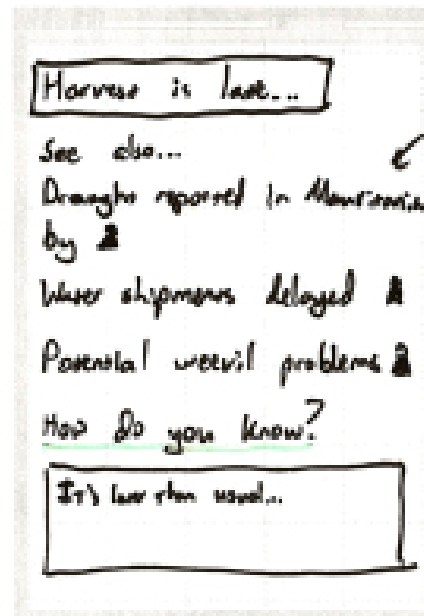 Harvest is late...
See also...
Drought reported in Mauritania
by
Water shipments delayed
Potential weevil problems
How do you know?
It's later than usual...